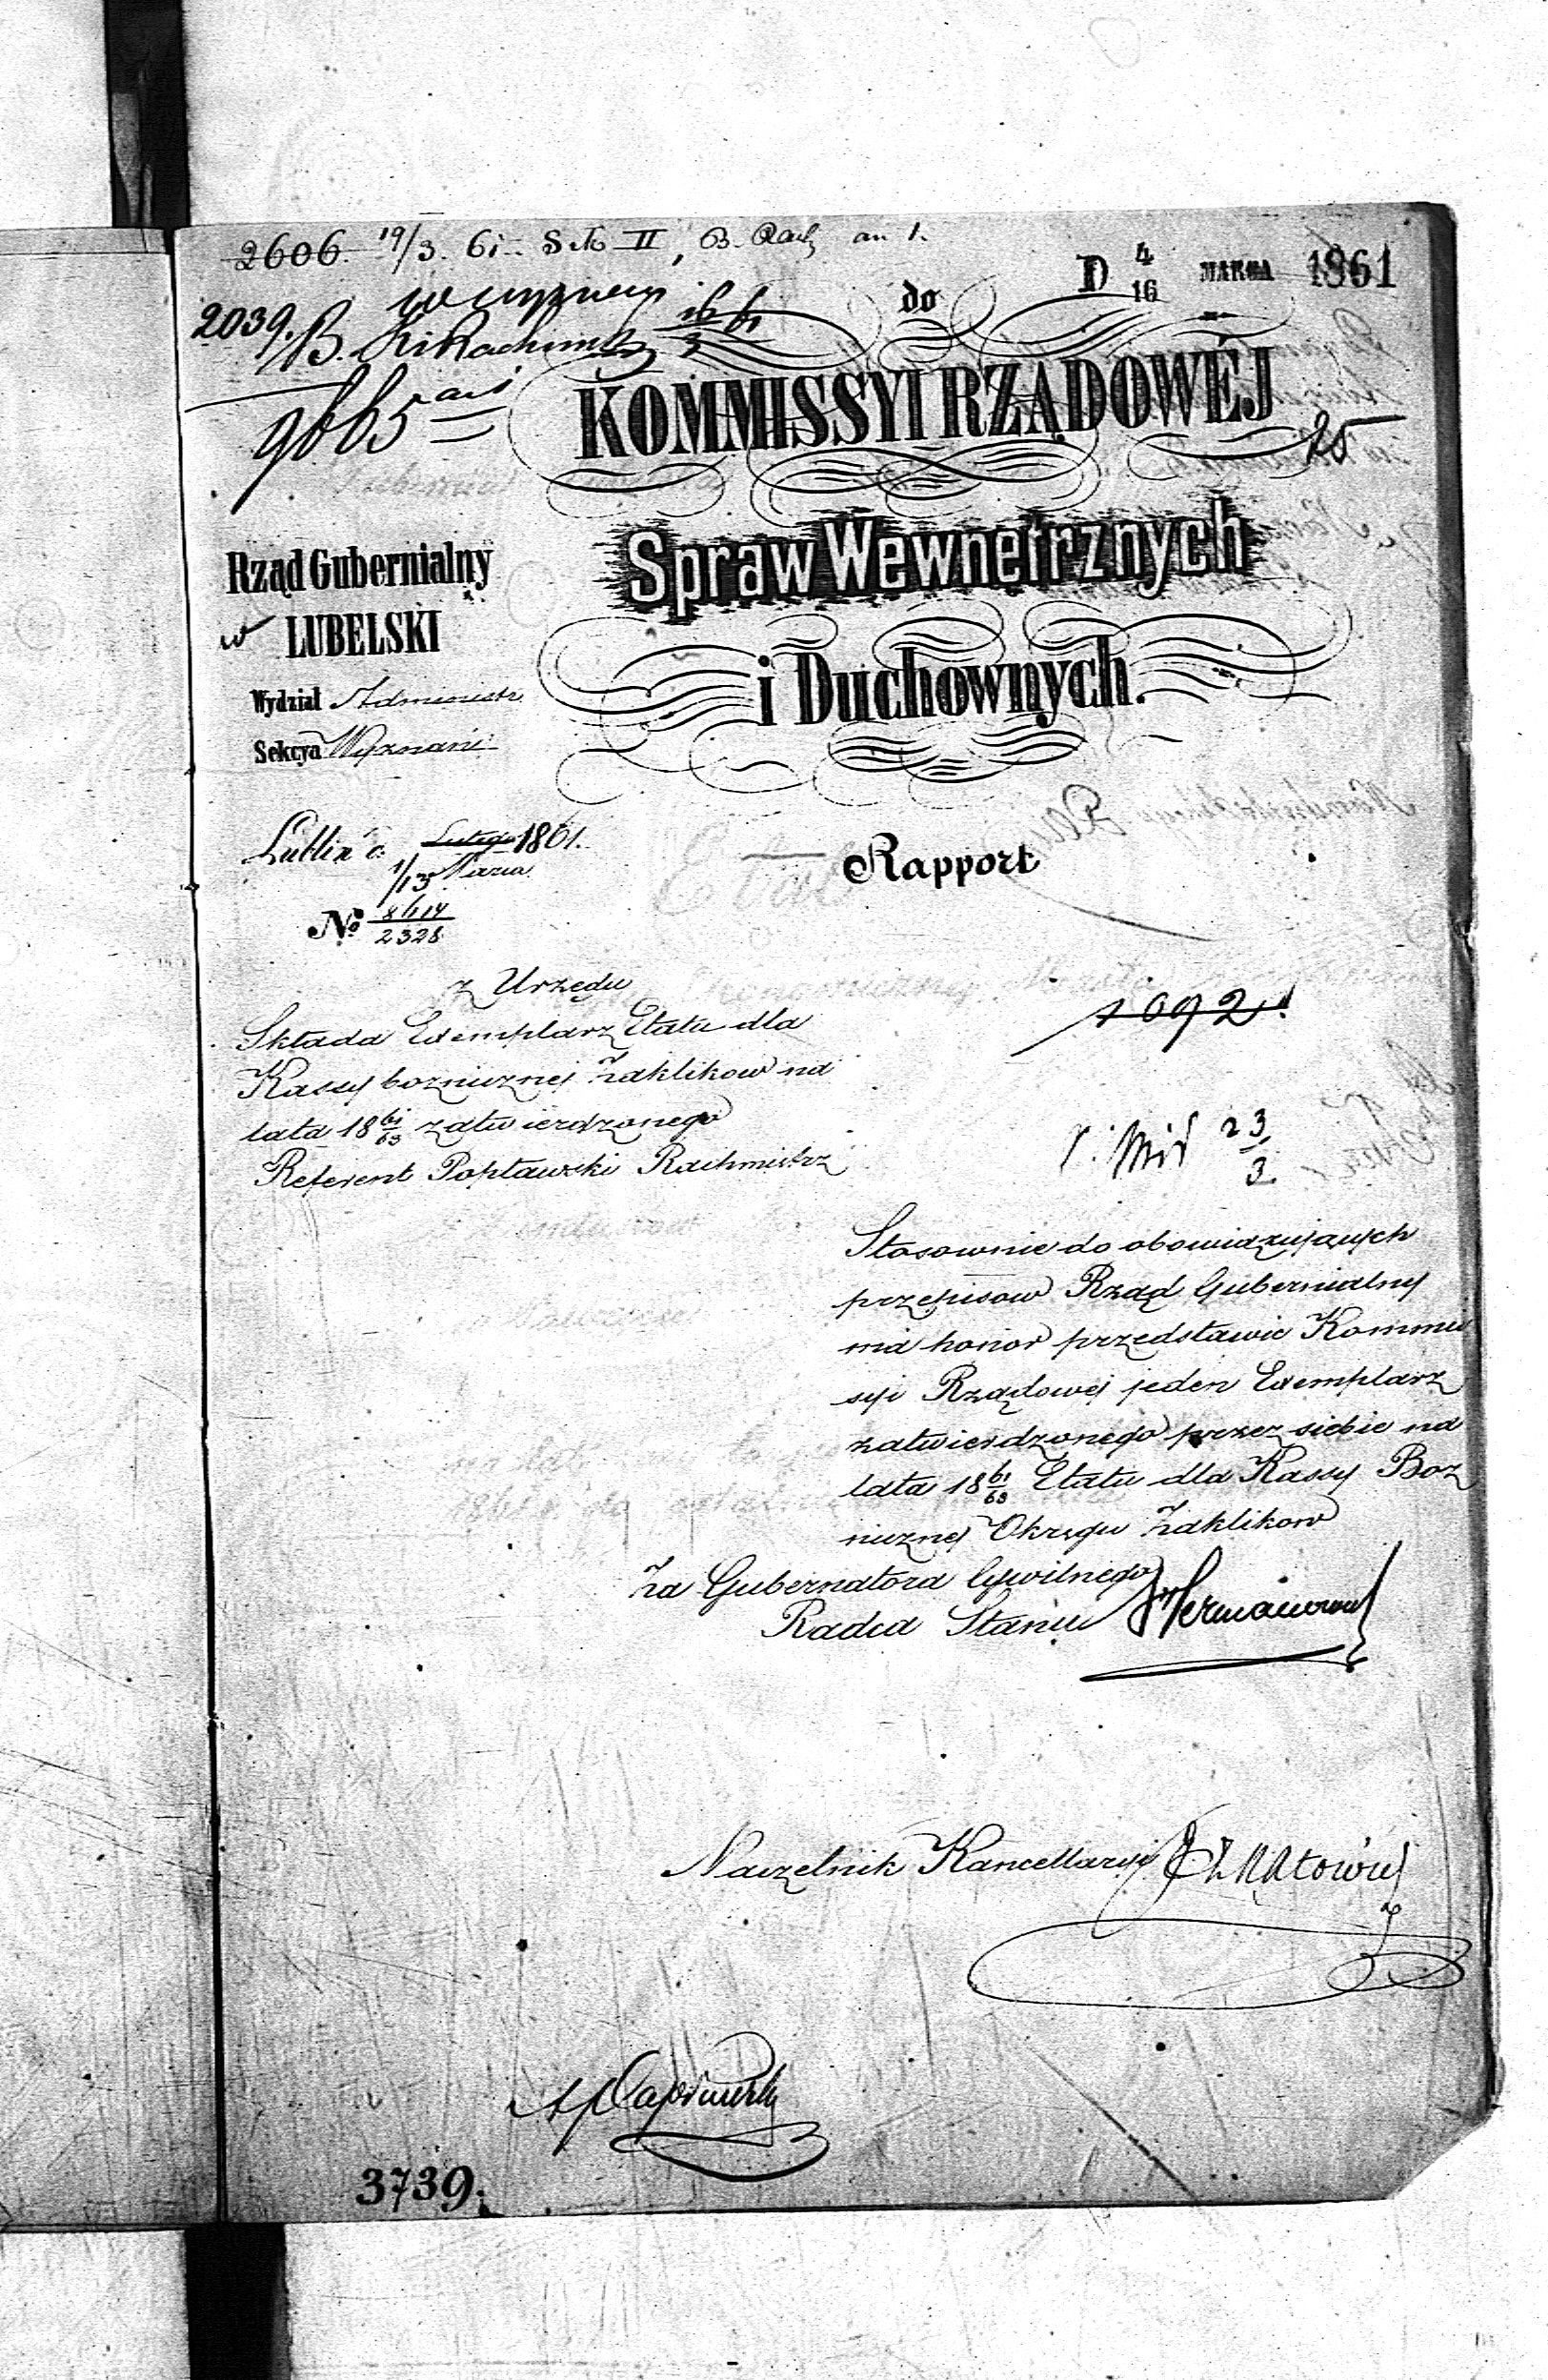 2606. 19/3. 61
D 4/16 MARCA 1861
do
2039.
9665
KOMMISSYI RZĄDOWÉJ
25
Spraw Wewnętrznych
i Duchownych.
Rząd Gubernialny
w LUBELSKI
Wydział Administr
Sekcya Wyznań
Lublin d. Lutego 1861.
1/13 Marca
Rapport
No 8614/2328
z Urzędu
Składa Exemplarz Etatu dla
Kassy boznicznej Zaklikow na
lata 18 61/63 zatwierdzonego
Referent Popławski Rachmistrz
1092
23/3
Stosownie do obowiązujących
przepisow Rząd Gubernialny
ma honor przedstawic Kommis
syi Rządowej jeden Exemplarz
zatwierdzonego przez siebie na
lata 18 61/63 Etatu dla Kassy Boz
nicznej Okręgu Zaklikow
Za Gubernatora Cywilnego
Radca Stanu
Naczelnik Kancellaryi
3739.